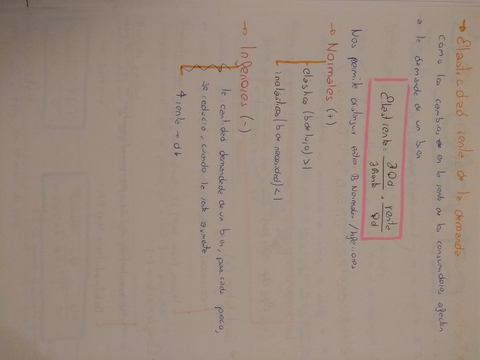 → Elasticidad renta de la demanda
Como los cambios en la renta de los consumidores, afectan
a la demanda de un bien
Elast renta = ∂Qd / ∂Renta · renta / Qd
Nos permite distinguir entre B Normales / Inferiores
→ Normales (+)
elástica (b de lujo) > 1
inelástica (b de necesidad) < 1
→ Inferiores (-)
la cantidad demandada de un bien, para cada precio,
se reducirá, cuando la renta aumente
↑ renta → d↓